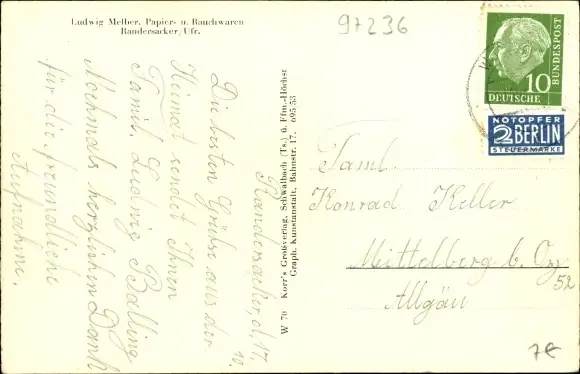 Ludwig Melber, Papier- u. Rauchwaren
Randersacker/Ufr.
97236
Randersacker, d. 17.
Die besten Grüße aus der
Heimat sendet Ihnen
Famil. Ludwig Balling
Nochmals herzlichen Dank
für die freundliche
Aufnahme.
W 70 Korr's Großverlag, Schwalbach (Ts.) ü. Ffm.-Höchst
Graph. Kunstanstalt, Bahnstr. 17. 695/53
10
DEUTSCHE
BUNDESPOST
NOTOPFER
2 BERLIN
STEUERMARKE
Faml.
Konrad Keller
Mittelberg b. Oy
52
Allgäu
7€